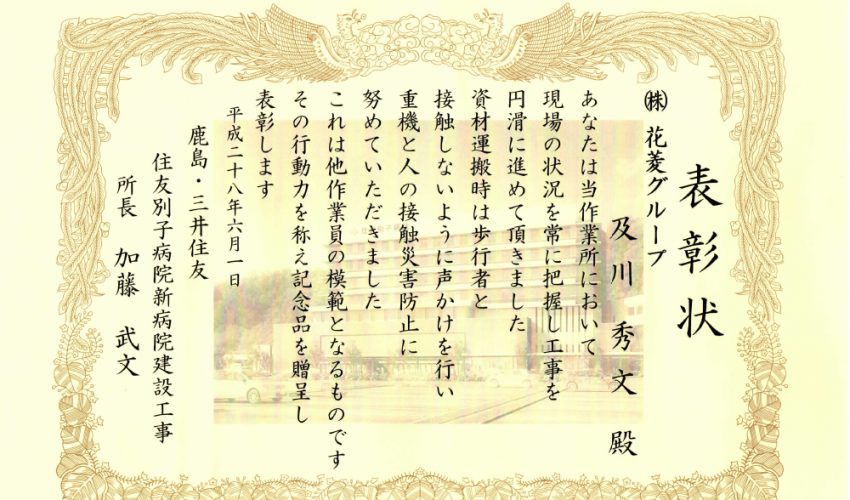 表彰状
㈱ 花菱グループ
及川秀文殿
あなたは当作業所において
現場の状況を常に把握し工事を
円滑に進めて頂きました
資材運搬時は歩行者と
接触しないように声かけを行い
重機と人の接触災害防止に
努めていただきました
これは他作業員の模範となるものです
その行動力を称え記念品を贈呈し
表彰します
平成二十八年六月一日
鹿島・三井住友
住友別子病院新病院建設工事
所長 加藤 武文